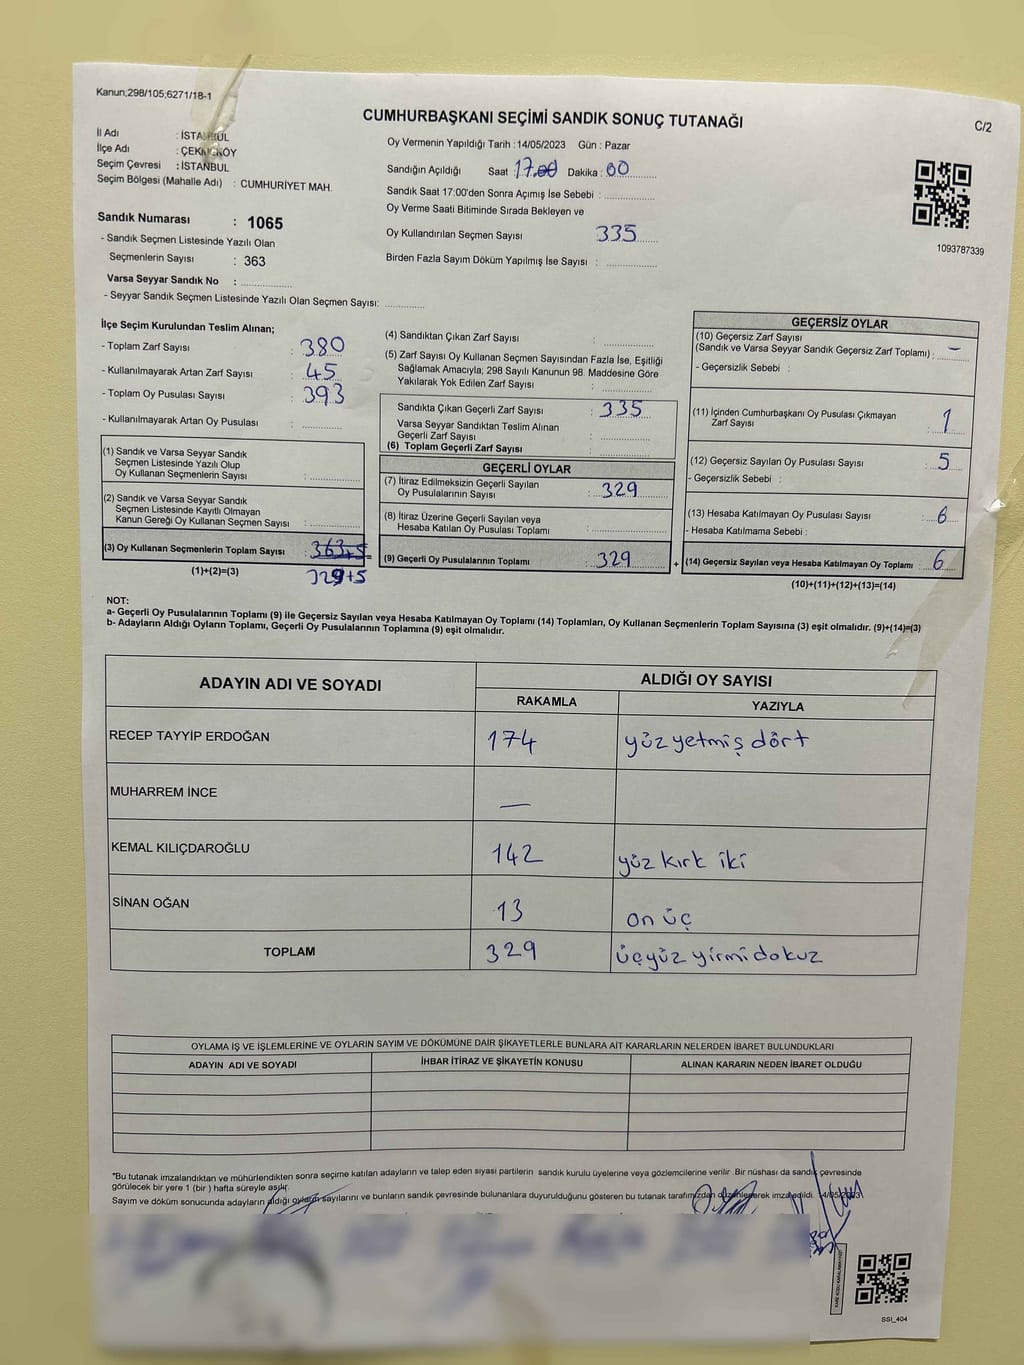 Kanun;298/105;6271/18-1
CUMHURBAŞKANI SEÇİMİ SANDIK SONUÇ TUTANAĞI
C/2
İl Adı : İSTANBUL
İlçe Adı : ÇEKMEKÖY
Seçim Çevresi : İSTANBUL
Seçim Bölgesi (Mahalle Adı) : CUMHURİYET MAH.
Sandık Numarası : 1065
- Sandık Seçmen Listesinde Yazılı Olan
Seçmenlerin Sayısı : 363
Varsa Seyyar Sandık No :
- Seyyar Sandık Seçmen Listesinde Yazılı Olan Seçmen Sayısı:
Oy Vermenin Yapıldığı Tarih : 14/05/2023 Gün : Pazar
Sandığın Açıldığı Saat : 17.00 Dakika : 00
Sandık Saat 17:00'den Sonra Açımış İse Sebebi :
Oy Verme Saati Bitiminde Sırada Bekleyen ve
Oy Kullandırılan Seçmen Sayısı 335
Birden Fazla Sayım Döküm Yapılmış İse Sayısı :
1093787339
İlçe Seçim Kurulundan Teslim Alınan;
- Toplam Zarf Sayısı : 380
- Kullanılmayarak Artan Zarf Sayısı : 45
- Toplam Oy Pusulası Sayısı : 393
- Kullanılmayarak Artan Oy Pusulası :
(1) Sandık ve Varsa Seyyar Sandık
Seçmen Listesinde Yazılı Olup
Oy Kullanan Seçmenlerin Sayısı :
(2) Sandık ve Varsa Seyyar Sandık
Seçmen Listesinde Kayıtlı Olmayan
Kanun Gereği Oy Kullanan Seçmen Sayısı :
(3) Oy Kullanan Seçmenlerin Toplam Sayısı : 363+5=
(1)+(2)=(3) 329+5
(4) Sandıktan Çıkan Zarf Sayısı :
(5) Zarf Sayısı Oy Kullanan Seçmen Sayısından Fazla İse, Eşitliği
Sağlamak Amacıyla; 298 Sayılı Kanunun 98. Maddesine Göre
Yakılarak Yok Edilen Zarf Sayısı :
Sandıkta Çıkan Geçerli Zarf Sayısı : 335
Varsa Seyyar Sandıktan Teslim Alınan
Geçerli Zarf Sayısı :
(6) Toplam Geçerli Zarf Sayısı :
GEÇERLİ OYLAR
(7) İtiraz Edilmeksizin Geçerli Sayılan
Oy Pusulalarının Sayısı : 329
(8) İtiraz Üzerine Geçerli Sayılan veya
Hesaba Katılan Oy Pusulası Toplamı :
(9) Geçerli Oy Pusulalarının Toplamı : 329
+
GEÇERSİZ OYLAR
(10) Geçersiz Zarf Sayısı
(Sandık ve Varsa Seyyar Sandık Geçersiz Zarf Toplamı) : –
- Geçersizlik Sebebi :
(11) İçinden Cumhurbaşkanı Oy Pusulası Çıkmayan
Zarf Sayısı : 1
(12) Geçersiz Sayılan Oy Pusulası Sayısı : 5
- Geçersizlik Sebebi :
(13) Hesaba Katılmayan Oy Pusulası Sayısı : 6
- Hesaba Katılmama Sebebi :
(14) Geçersiz Sayılan veya Hesaba Katılmayan Oy Toplamı : 6
(10)+(11)+(12)+(13)=(14)
NOT:
a- Geçerli Oy Pusulalarının Toplamı (9) ile Geçersiz Sayılan veya Hesaba Katılmayan Oy Toplamı (14) Toplamları, Oy Kullanan Seçmenlerin Toplam Sayısına (3) eşit olmalıdır. (9)+(14)=(3)
b- Adayların Aldığı Oyların Toplamı, Geçerli Oy Pusulalarının Toplamına (9) eşit olmalıdır.
ADAYIN ADI VE SOYADI ALDIĞI OY SAYISI
RAKAMLA YAZIYLA
RECEP TAYYİP ERDOĞAN 174 yüz yetmiş dört
MUHARREM İNCE —
KEMAL KILIÇDAROĞLU 142 yüz kırk iki
SİNAN OĞAN 13 on üç
TOPLAM 329 üçyüz yirmidokuz
OYLAMA İŞ VE İŞLEMLERİNE VE OYLARIN SAYIM VE DÖKÜMÜNE DAİR ŞİKAYETLERLE BUNLARA AİT KARARLARIN NELERDEN İBARET BULUNDUKLARI
ADAYIN ADI VE SOYADI İHBAR İTİRAZ VE ŞİKAYETİN KONUSU ALINAN KARARIN NEDEN İBARET OLDUĞU
"Bu tutanak imzalandıktan ve mühürlendikten sonra seçime katılan adayların ve talep eden siyasi partilerin sandık kurulu üyelerine veya gözlemcilerine verilir .Bir nüshası da sandık çevresinde
görülecek bir yere 1 (bir ) hafta süreyle asılır.
Sayım ve döküm sonucunda adayların aldığı oyların sayılarını ve bunların sandık çevresinde bulunanlara duyurulduğunu gösteren bu tutanak tarafımızdan düzenlenerek imza edildi. 14/05/2023
SSI_404